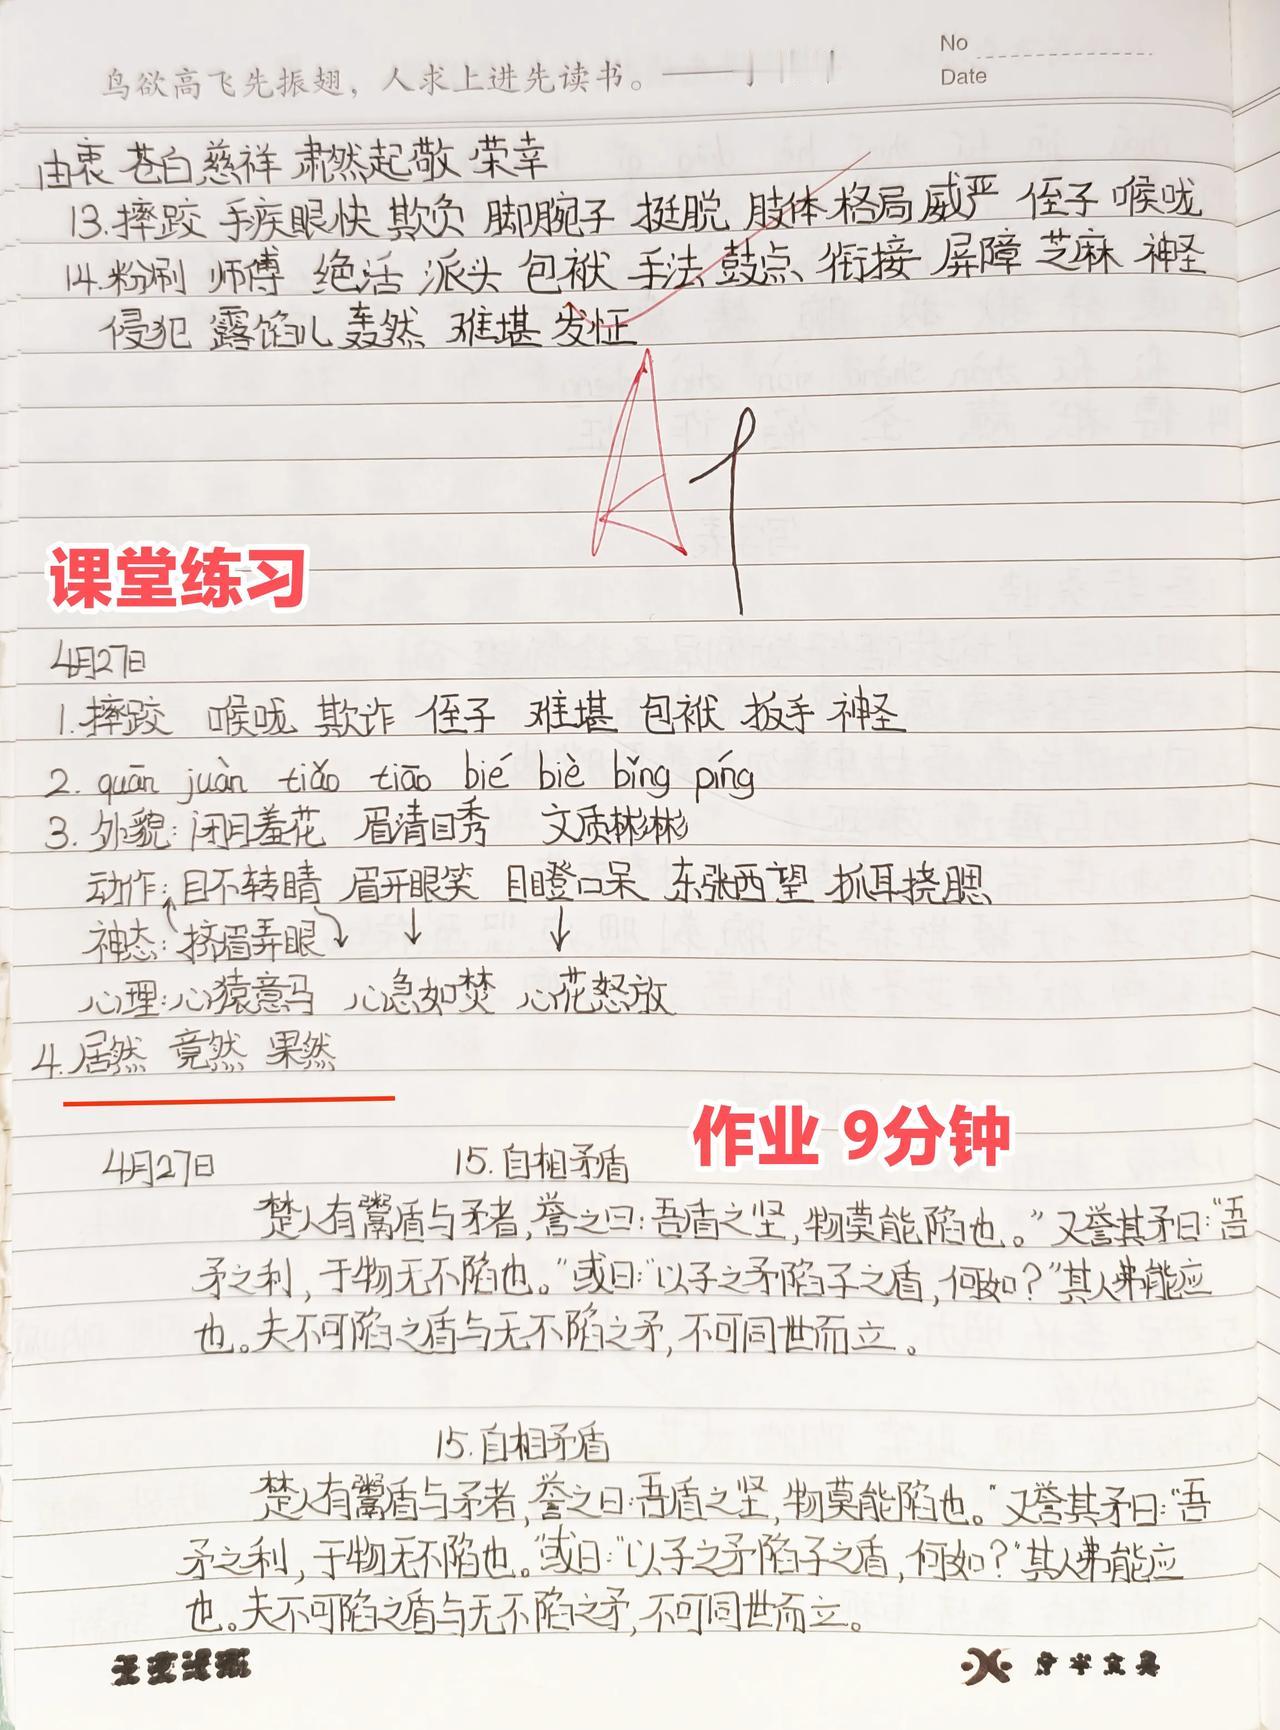 鸟欲高飞先振翅，人求上进先读书。——
No
Date
由衷 苍白 慈祥 肃然起敬 荣幸
13.摔跤 手疾眼快 欺负 脚腕子 挺脱 肢体 格局 威严 侄子 喉咙
14.粉刷 师傅 绝活 派头 包袱 手法 鼓点 衔接 屏障 芝麻 神圣
侵犯 露馅儿 轰然 难堪 发怔
A
课堂练习
4月27日
1.摔跤 喉咙 欺诈 侄子 难堪 包袱 扳手 神圣
2. quān juàn tiǎo tiāo bié biè bǐng píng
3. 外貌：闭月羞花 眉清目秀 文质彬彬
动作：目不转睛 眉开眼笑 目瞪口呆 东张西望 抓耳挠腮
神态：挤眉弄眼
心理：心猿意马 心急如焚 心花怒放
4.居然 竟然 果然
作业 9分钟
4月27日 15.自相矛盾
楚人有鬻盾与矛者，誉之曰：吾盾之坚，物莫能陷也。”又誉其矛曰：“吾
矛之利，于物无不陷也。”或曰：“以子之矛陷子之盾，何如？”其人弗能应
也。夫不可陷之盾与无不陷之矛，不可同世而立。
15.自相矛盾
楚人有鬻盾与矛者，誉之曰：吾盾之坚，物莫能陷也。”又誉其矛曰：“吾
矛之利，于物无不陷也。”或曰：“以子之矛陷子之盾，何如？”其人弗能应
也。夫不可陷之盾与无不陷之矛，不可同世而立。